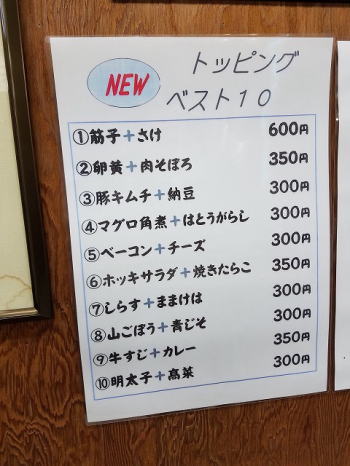 NEW
トッピング
ベスト10
①筋子+さけ 600円
②卵黄+肉そぼろ 350円
③豚キムチ+納豆 300円
④マグロ角煮+はとうがらし 300円
⑤ベーコン+チーズ 300円
⑥ホッキサラダ+焼きたらこ 350円
⑦しらす+ままけは 300円
⑧山ごぼう+青じそ 300円
⑨牛すじ+カレー 350円
⑩明太子+高菜 300円